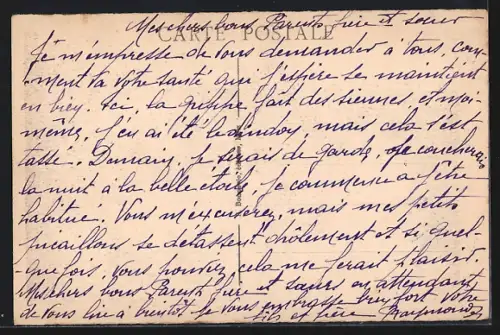 Mes chers bons Parents frère et sœur
CARTE POSTALE
Je m'empresse de vous demander à tous, com-
ment va votre santé que j'espère se maintient
en bien. Ici, la grippe fait des siennes, et moi-
même, j'en ai été le dindon, mais cela s'est
tassé. Demain, je serais de garde, je coucherais
la nuit à la belle étoile, je commence a y être
habitué. Vous m'excuserez, mais mes petits
picaillons se détassent drôlement et si quel-
quefois, vous pouvez, cela me ferait plaisir.
Mes chers bons Parents frère et sœurs en attendant
de vous lire à bientôt. Je vous embrasse bien fort Votre
fils et frère Raymond